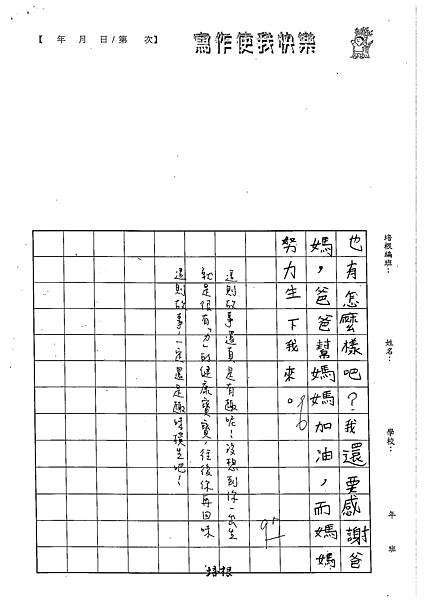 【 年 月 日/第 次】
寫作使我快樂
培根編班：
姓名：
學校：
年 班
也有怎麼樣吧？我還要感謝爸
媽，爸爸幫媽媽加油，而媽媽
努力生下我來。
這則故事還真是有趣呢！沒想到你一出生
就是很有「力」的健康寶寶，往後你再回味
這則故事，一定還是趣味橫生吧！
培根